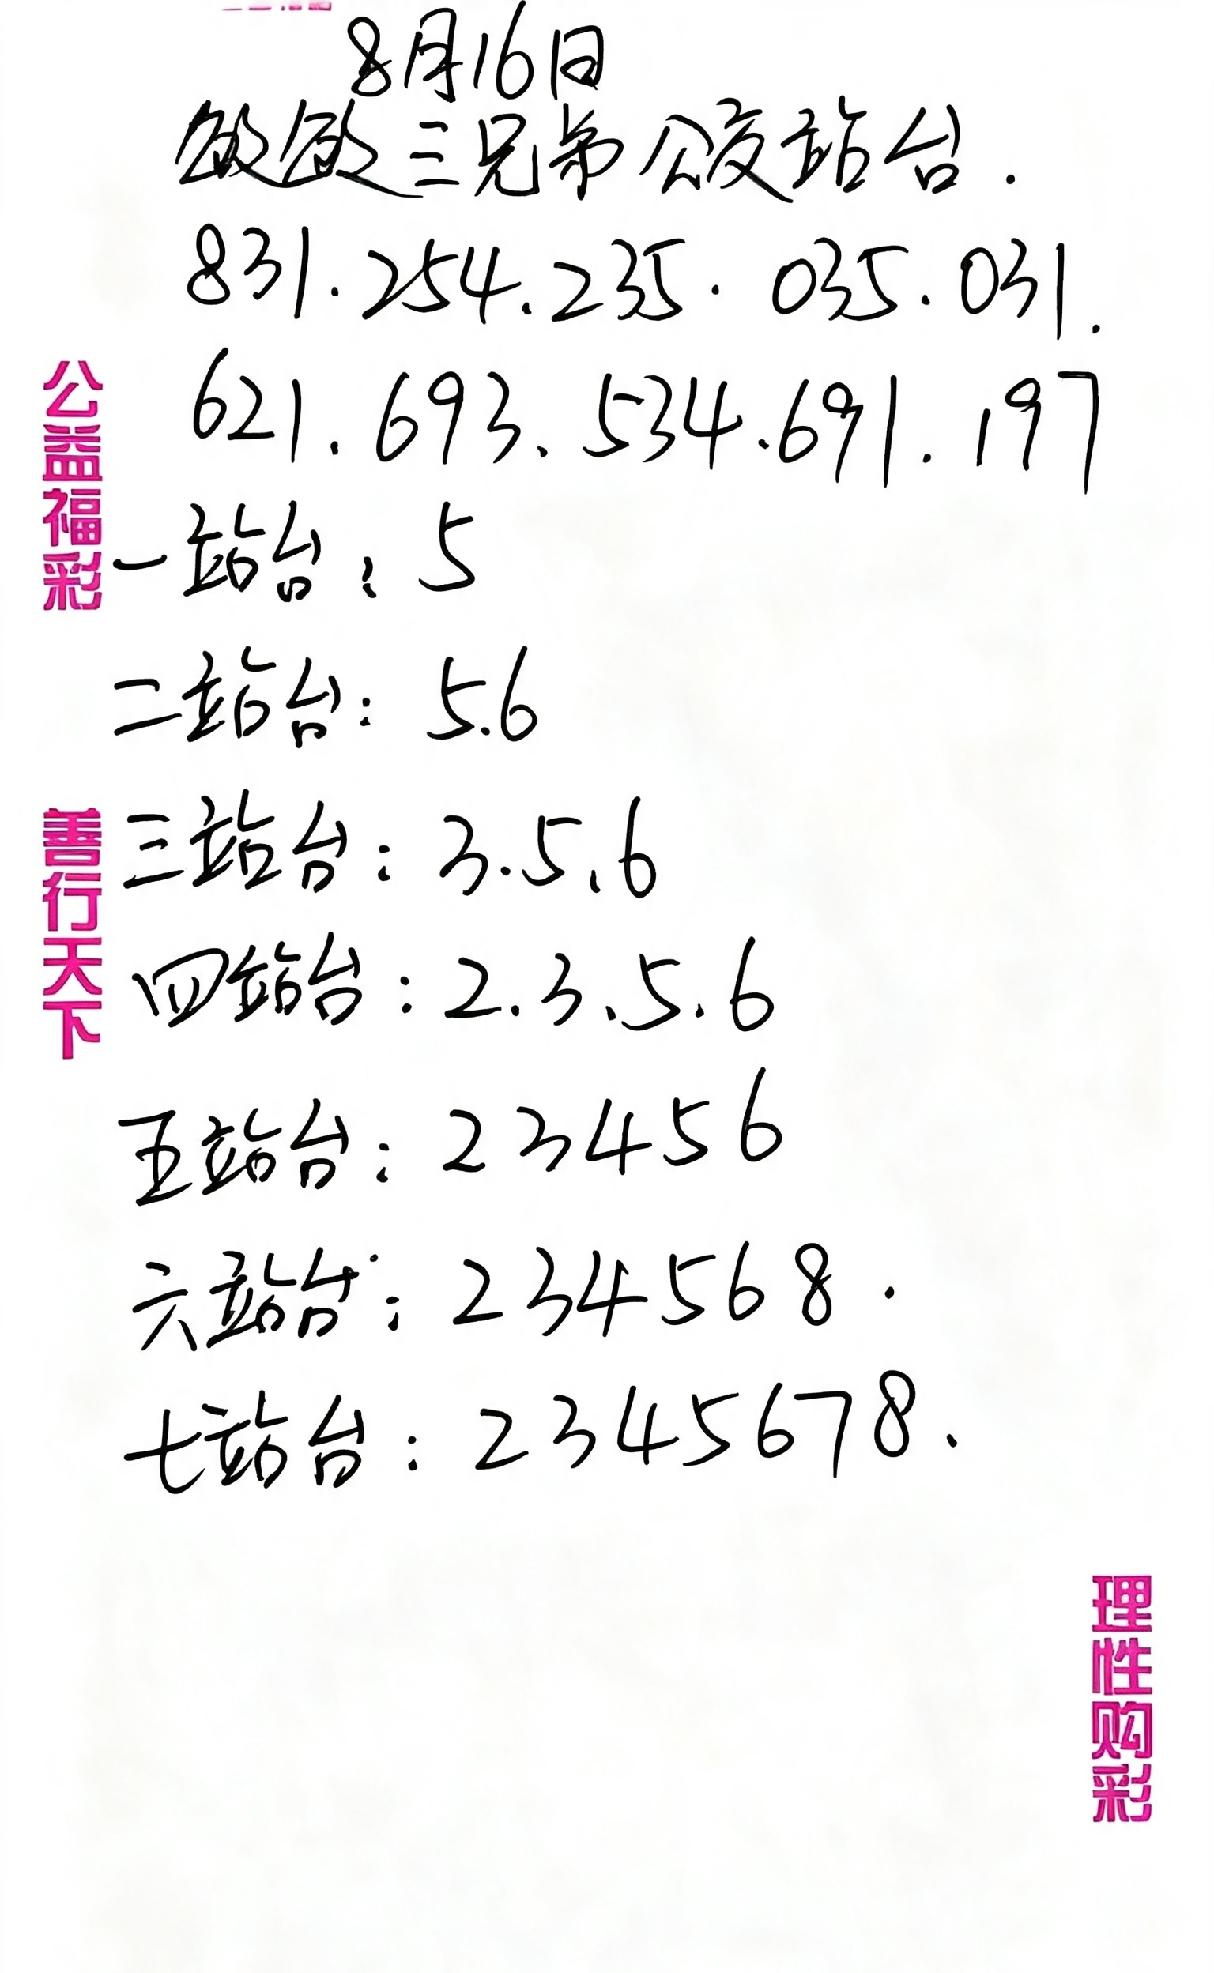 8月16日
敏敏三兄弟公交站台.
831.254.235.035.031.
621.693.534.691.197
一站台:5
二站台:5.6
三站台:3.5.6
四站台:2.3.5.6
五站台:23456
六站台:234568.
七站台:2345678.
公益福彩
善行天下
理性购彩